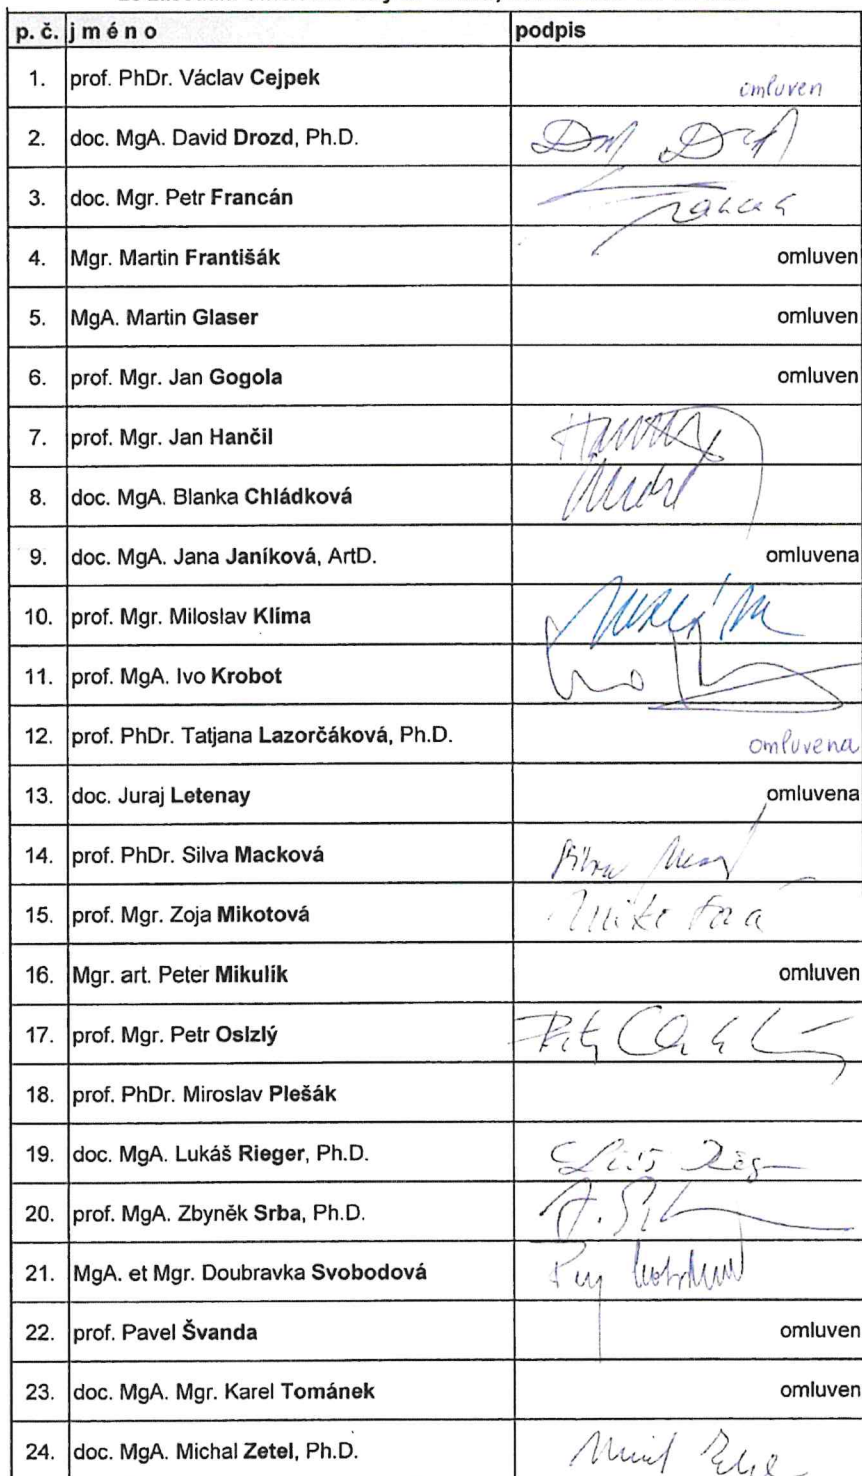 p. č. j m é n o podpis
1. prof. PhDr. Václav Cejpek omluven
2. doc. MgA. David Drozd, Ph.D.
3. doc. Mgr. Petr Francán
4. Mgr. Martin Františák omluven
5. MgA. Martin Glaser omluven
6. prof. Mgr. Jan Gogola omluven
7. prof. Mgr. Jan Hančil
8. doc. MgA. Blanka Chládková
9. doc. MgA. Jana Janíková, ArtD. omluvena
10. prof. Mgr. Miloslav Klíma
11. prof. MgA. Ivo Krobot
12. prof. PhDr. Tatjana Lazorčáková, Ph.D. omluvena
13. doc. Juraj Letenay omluvena
14. prof. PhDr. Silva Macková
15. prof. Mgr. Zoja Mikotová
16. Mgr. art. Peter Mikulík omluven
17. prof. Mgr. Petr Oslzlý
18. prof. PhDr. Miroslav Plešák
19. doc. MgA. Lukáš Rieger, Ph.D.
20. prof. MgA. Zbyněk Srba, Ph.D.
21. MgA. et Mgr. Doubravka Svobodová
22. prof. Pavel Švanda omluven
23. doc. MgA. Mgr. Karel Tománek omluven
24. doc. MgA. Michal Zetel, Ph.D.